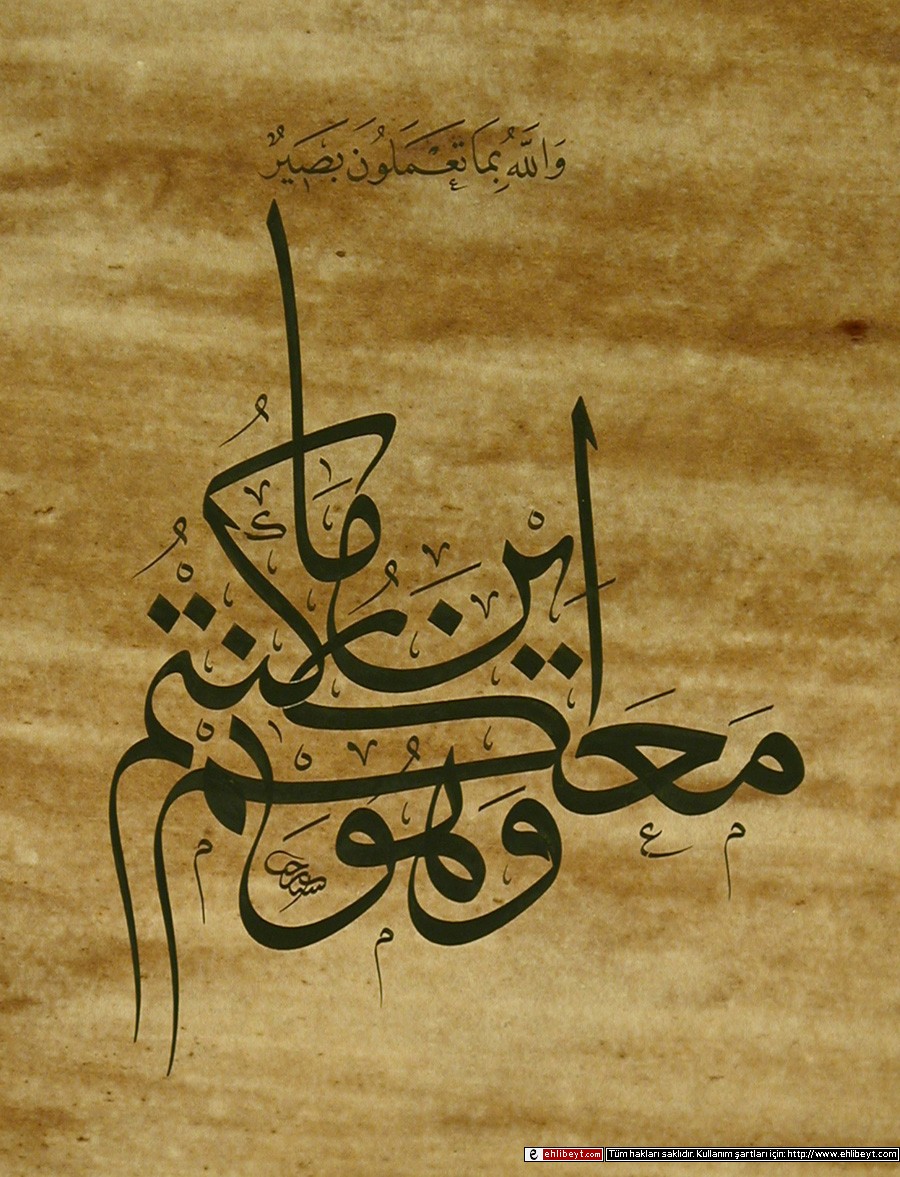 وَاللَّهُ بِمَا تَعْمَلُونَ بَصِيرٌ
وَهُوَ مَعَكُمْ أَيْنَ مَا كُنْتُمْ
ehlibeyt.com Tüm hakları saklıdır. Kullanım şartları için: http://www.ehlibeyt.com